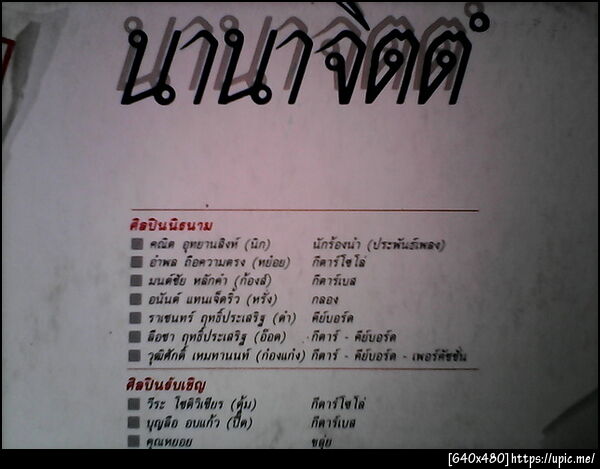 นานาจิตตํ
ศิลปินนิธนาม
คณิต อุทยานสิงห์ (นิก) นักร้องนำ (ประพันธ์เพลง)
อำพล ถือความตรง (หย่อย) กีตาร์โซโล่
มนต์ชัย หลักคำ (ก้องส์) กีตาร์เบส
อนันต์ แทนเจ็ดริ้ว (หรั่ง) กลอง
ราเชนทร์ ฤทธิ์ประเสริฐ (ดำ) คีย์บอร์ด
ลือชา ฤทธิ์ประเสริฐ (อ๊อด) กีตาร์ - คีย์บอร์ด
วุฒิศักดิ์ เหมทานนท์ (ก๋องแก๋ง) กีตาร์ - คีย์บอร์ด - เพอร์คัชชั่น
ศิลปินรับเชิญ
วีระ โชติวิเชียร (คุ้ม) กีตาร์โซโล่
บุญลือ อบแก้ว (ปื๊ด) กีตาร์เบส
คุณหยอย ขลุ่ย
[640x480]https://upic.me/